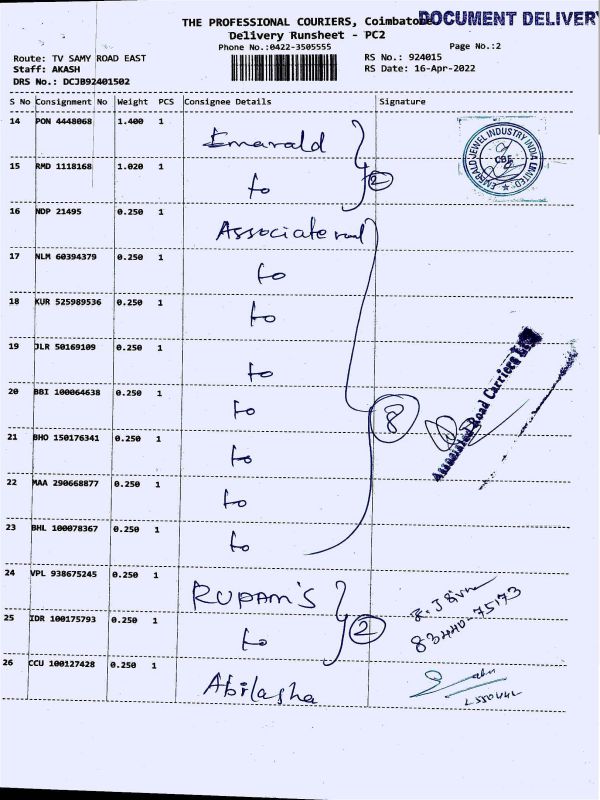 THE PROFESSIONAL COURIERS, Coimbatore
DOCUMENT DELIVERY
Delivery Runsheet - PC2
Phone No.:0422-3505555
Page No.:2
Route: TV SAMY ROAD EAST
RS No.: 924015
Staff: AKASH
RS Date: 16-Apr-2022
DRS No.: DCJB92401502
S No Consignment No Weight PCS Consignee Details Signature
14 PON 4448068 1.400 1 Emerald
EMERALD JEWEL INDUSTRY INDIA LIMITED
CBE
15 RMD 1118168 1.020 1 to 2
16 NDP 21495 0.250 1 Associate road
17 NLM 60394379 0.250 1 to
18 KUR 525989536 0.250 1 to
19 JLR 50169109 0.250 1 to
20 BBI 100064638 0.250 1 to 8
Associated Road Carriers
21 BHO 150176341 0.250 1 to
22 MAA 290668877 0.250 1 to
23 BHL 100078367 0.250 1 to
24 VPL 938675245 0.250 1 RUPAM'S
25 IDR 100175793 0.250 1 to 2
83440-75173
26 CCU 100127428 0.250 1 Abilasha